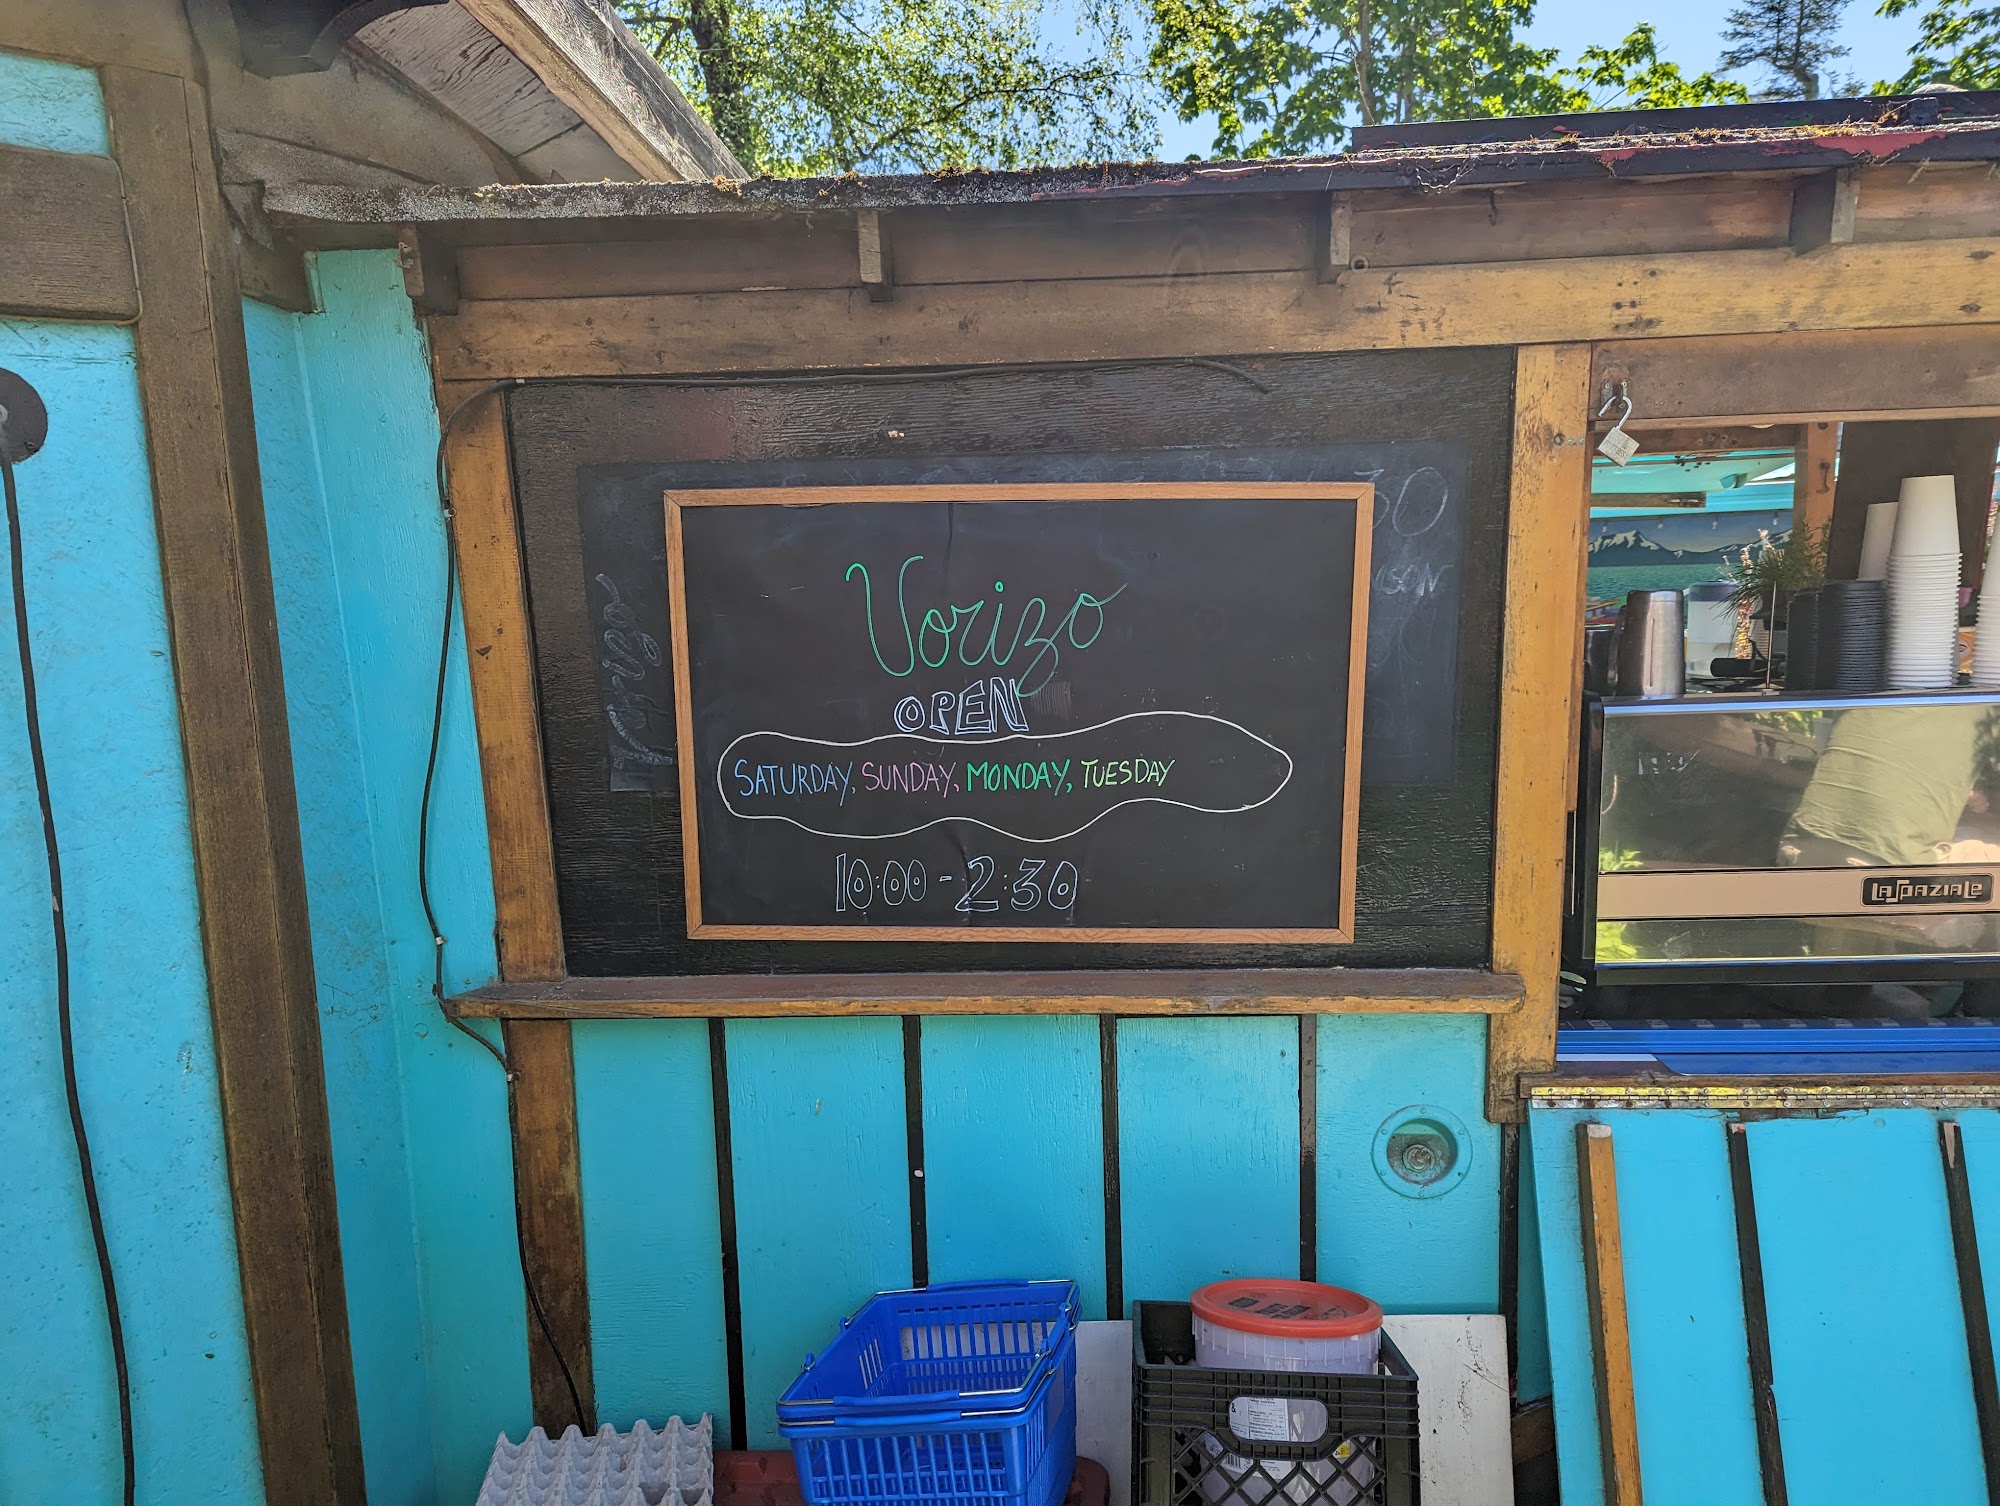 Vorizo
OPEN
SATURDAY, SUNDAY, MONDAY, TUESDAY
10:00 - 2:30
30
LaSpaziale